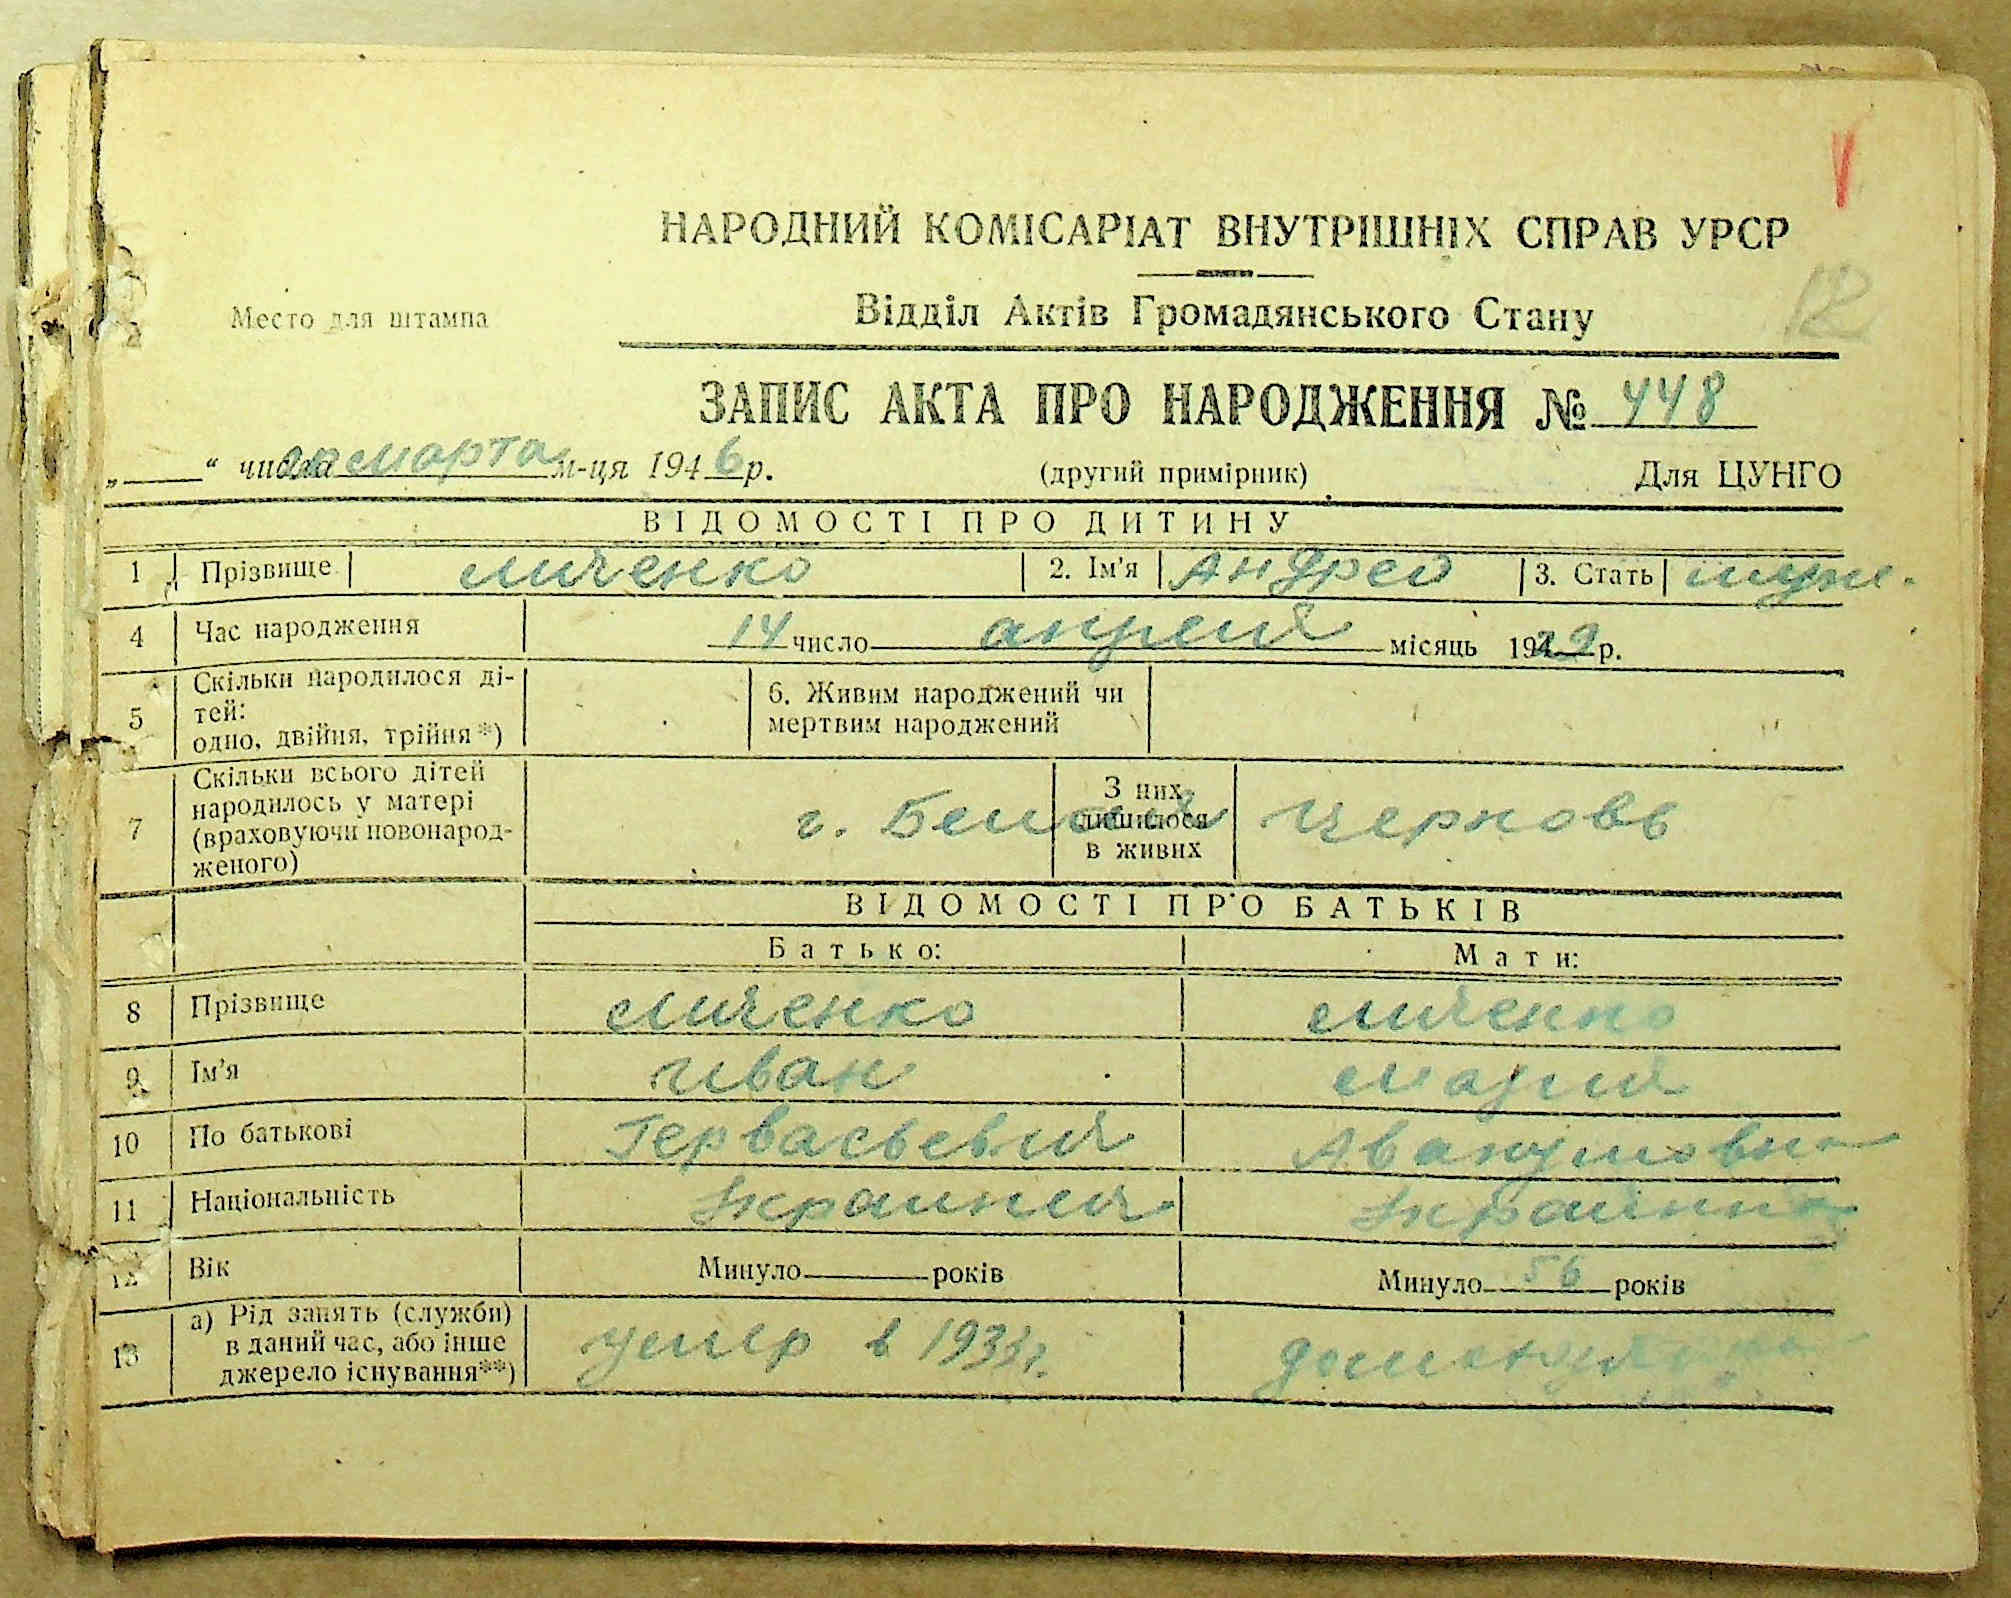 НАРОДНИЙ КОМІСАРІАТ ВНУТРІШНІХ СПРАВ УРСР
Место для штампа
Відділ Актів Громадянського Стану
12
ЗАПИС АКТА ПРО НАРОДЖЕННЯ № 448
„ “ числа марта м-ця 1946 р. (другий примірник) Для ЦУНГО
ВІДОМОСТІ ПРО ДИТИНУ
1 Прізвище Личенко 2. Ім'я Андрей 3. Стать муж.
4 Час народження 14 число апреля місяць 1929 р.
5 Скільки народилося ді-
тей:
одно, двійня, трійня*)
6. Живим народжений чи
мертвим народжений
7 Скільки всього дітей
народилось у матері
(враховуючи новонарод-
женого)
г.
З них
лишилося
в живих
ВІДОМОСТІ ПРО БАТЬКІВ
Батько: Мати:
8 Прізвище Личенко Личенко
9 Ім'я Иван Мария
10 По батькові Гервасьевич Авакумовна
11 Національність Украинец Украинка
12 Вік Минуло роківМинуло 56 років
13 а) Рід занять (служби)
в даний час, або інше
джерело існування**)
умер в 1933 г. домохозяйка